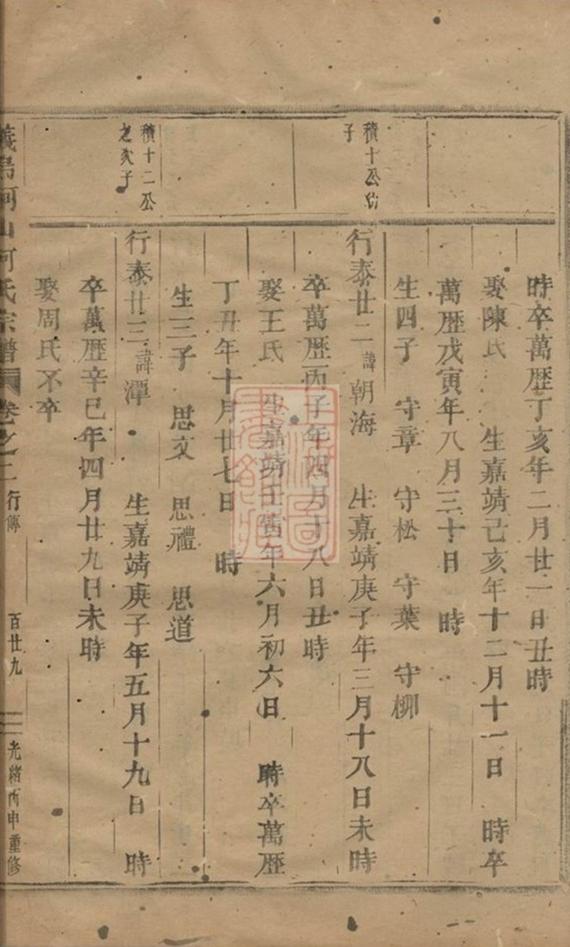 時卒萬歷丁亥年二月廿一日丑時
娶陳氏 生嘉靖己亥年十二月十一日 時卒
萬歷戊寅年八月三十日 時
生四子 守章 守松 守葉 守柳
積十公幼
子
行泰廿二諱朝海 生嘉靖庚子年三月十八日未時
卒萬歷丙子年四月十八日丑時
娶王氏 生嘉靖壬寅年六月初六日 時卒萬歷
丁丑年十月廿七日 時
生三子 思文 思禮 思道
積十二公
之次子
行泰廿三諱潭 生嘉靖庚子年五月十九日 時
卒萬歷辛巳年四月廿九日未時
娶周氏不卒
義烏河山何氏宗譜 卷之二 行傳 百廿九 光緒丙申重修